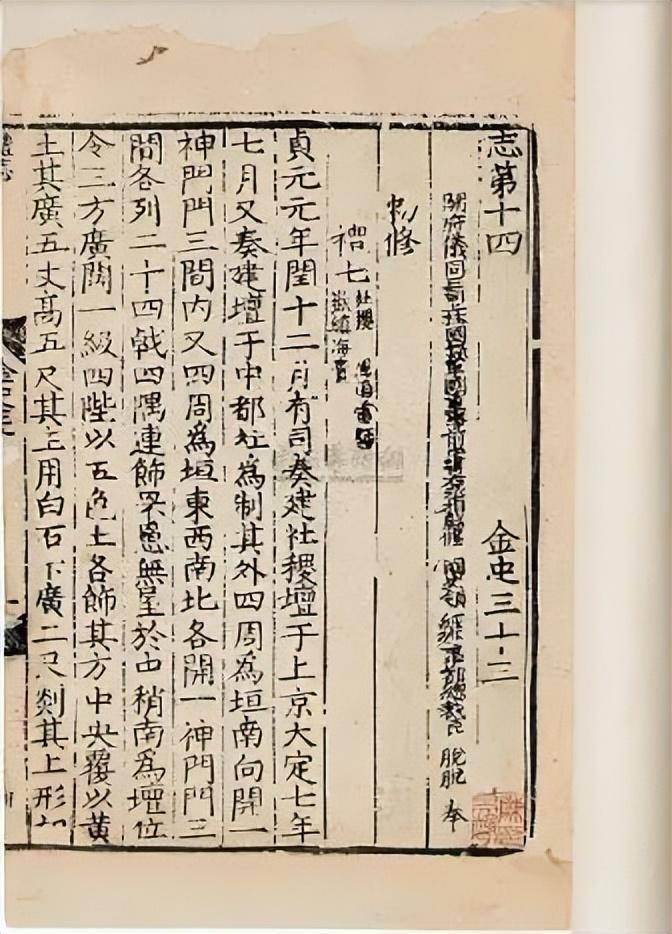 志第十四 金史三十三
開府儀同 國 軍國 前 事都總裁 脫脫 奉
勅修
七 社稷
嶽鎮海
貞元元年閏十二月有司奏建社稷壇于上京大定七年
七月又奏建壇于中都社爲制其外四周爲垣南向開一
神門門三間內又四周爲垣東西南北各開一神門門三
間各列二十四戟四隅連飾罘罳無屋於中稍南爲壇位
令三方廣闊一級四陛以五色土各飾其方中央覆以黃
土其廣五丈高五尺其主用白石下廣二尺剡其上形如